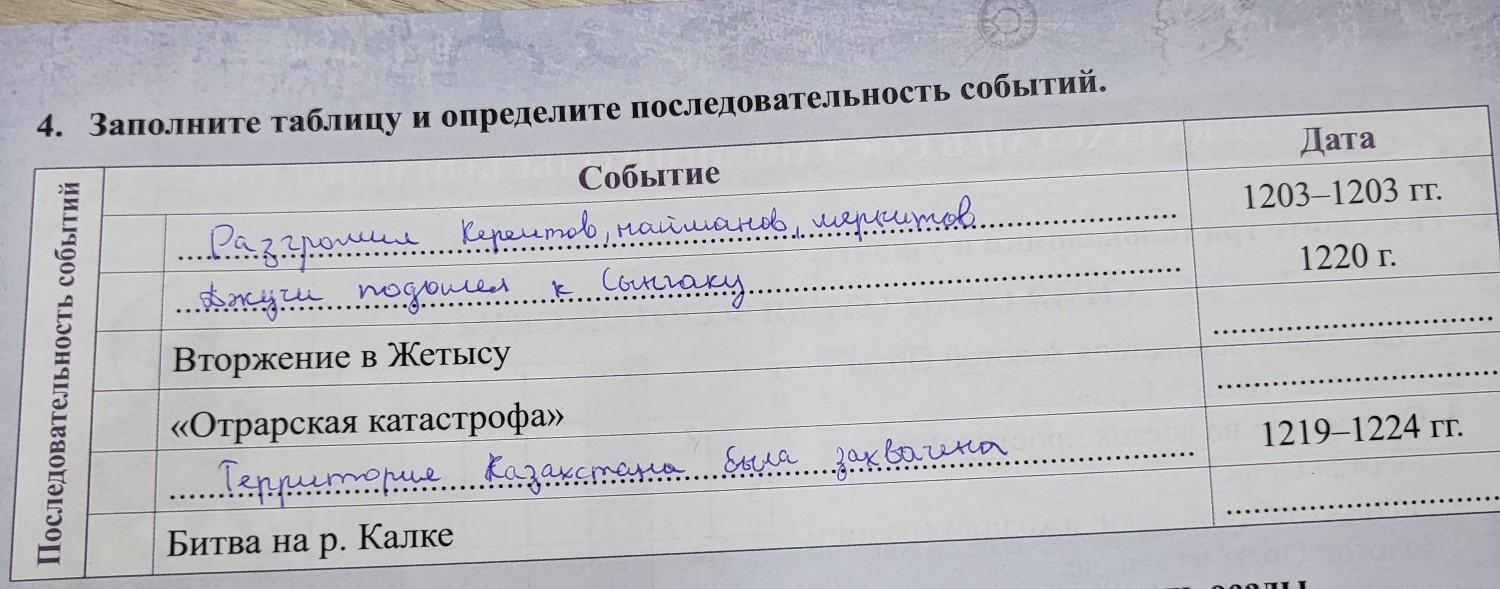 4. Заполните таблицу и определите последовательность событий.
Последовательность событий
Событие
Дата
Разгромил Кереитов, найманов, меркитов
1203–1203 гг.
Джучи подошел к Сынгаку
1220 г.
Вторжение в Жетысу
«Отрарская катастрофа»
Территория Казахстана была захвачена
1219–1224 гг.
Битва на р. Калке